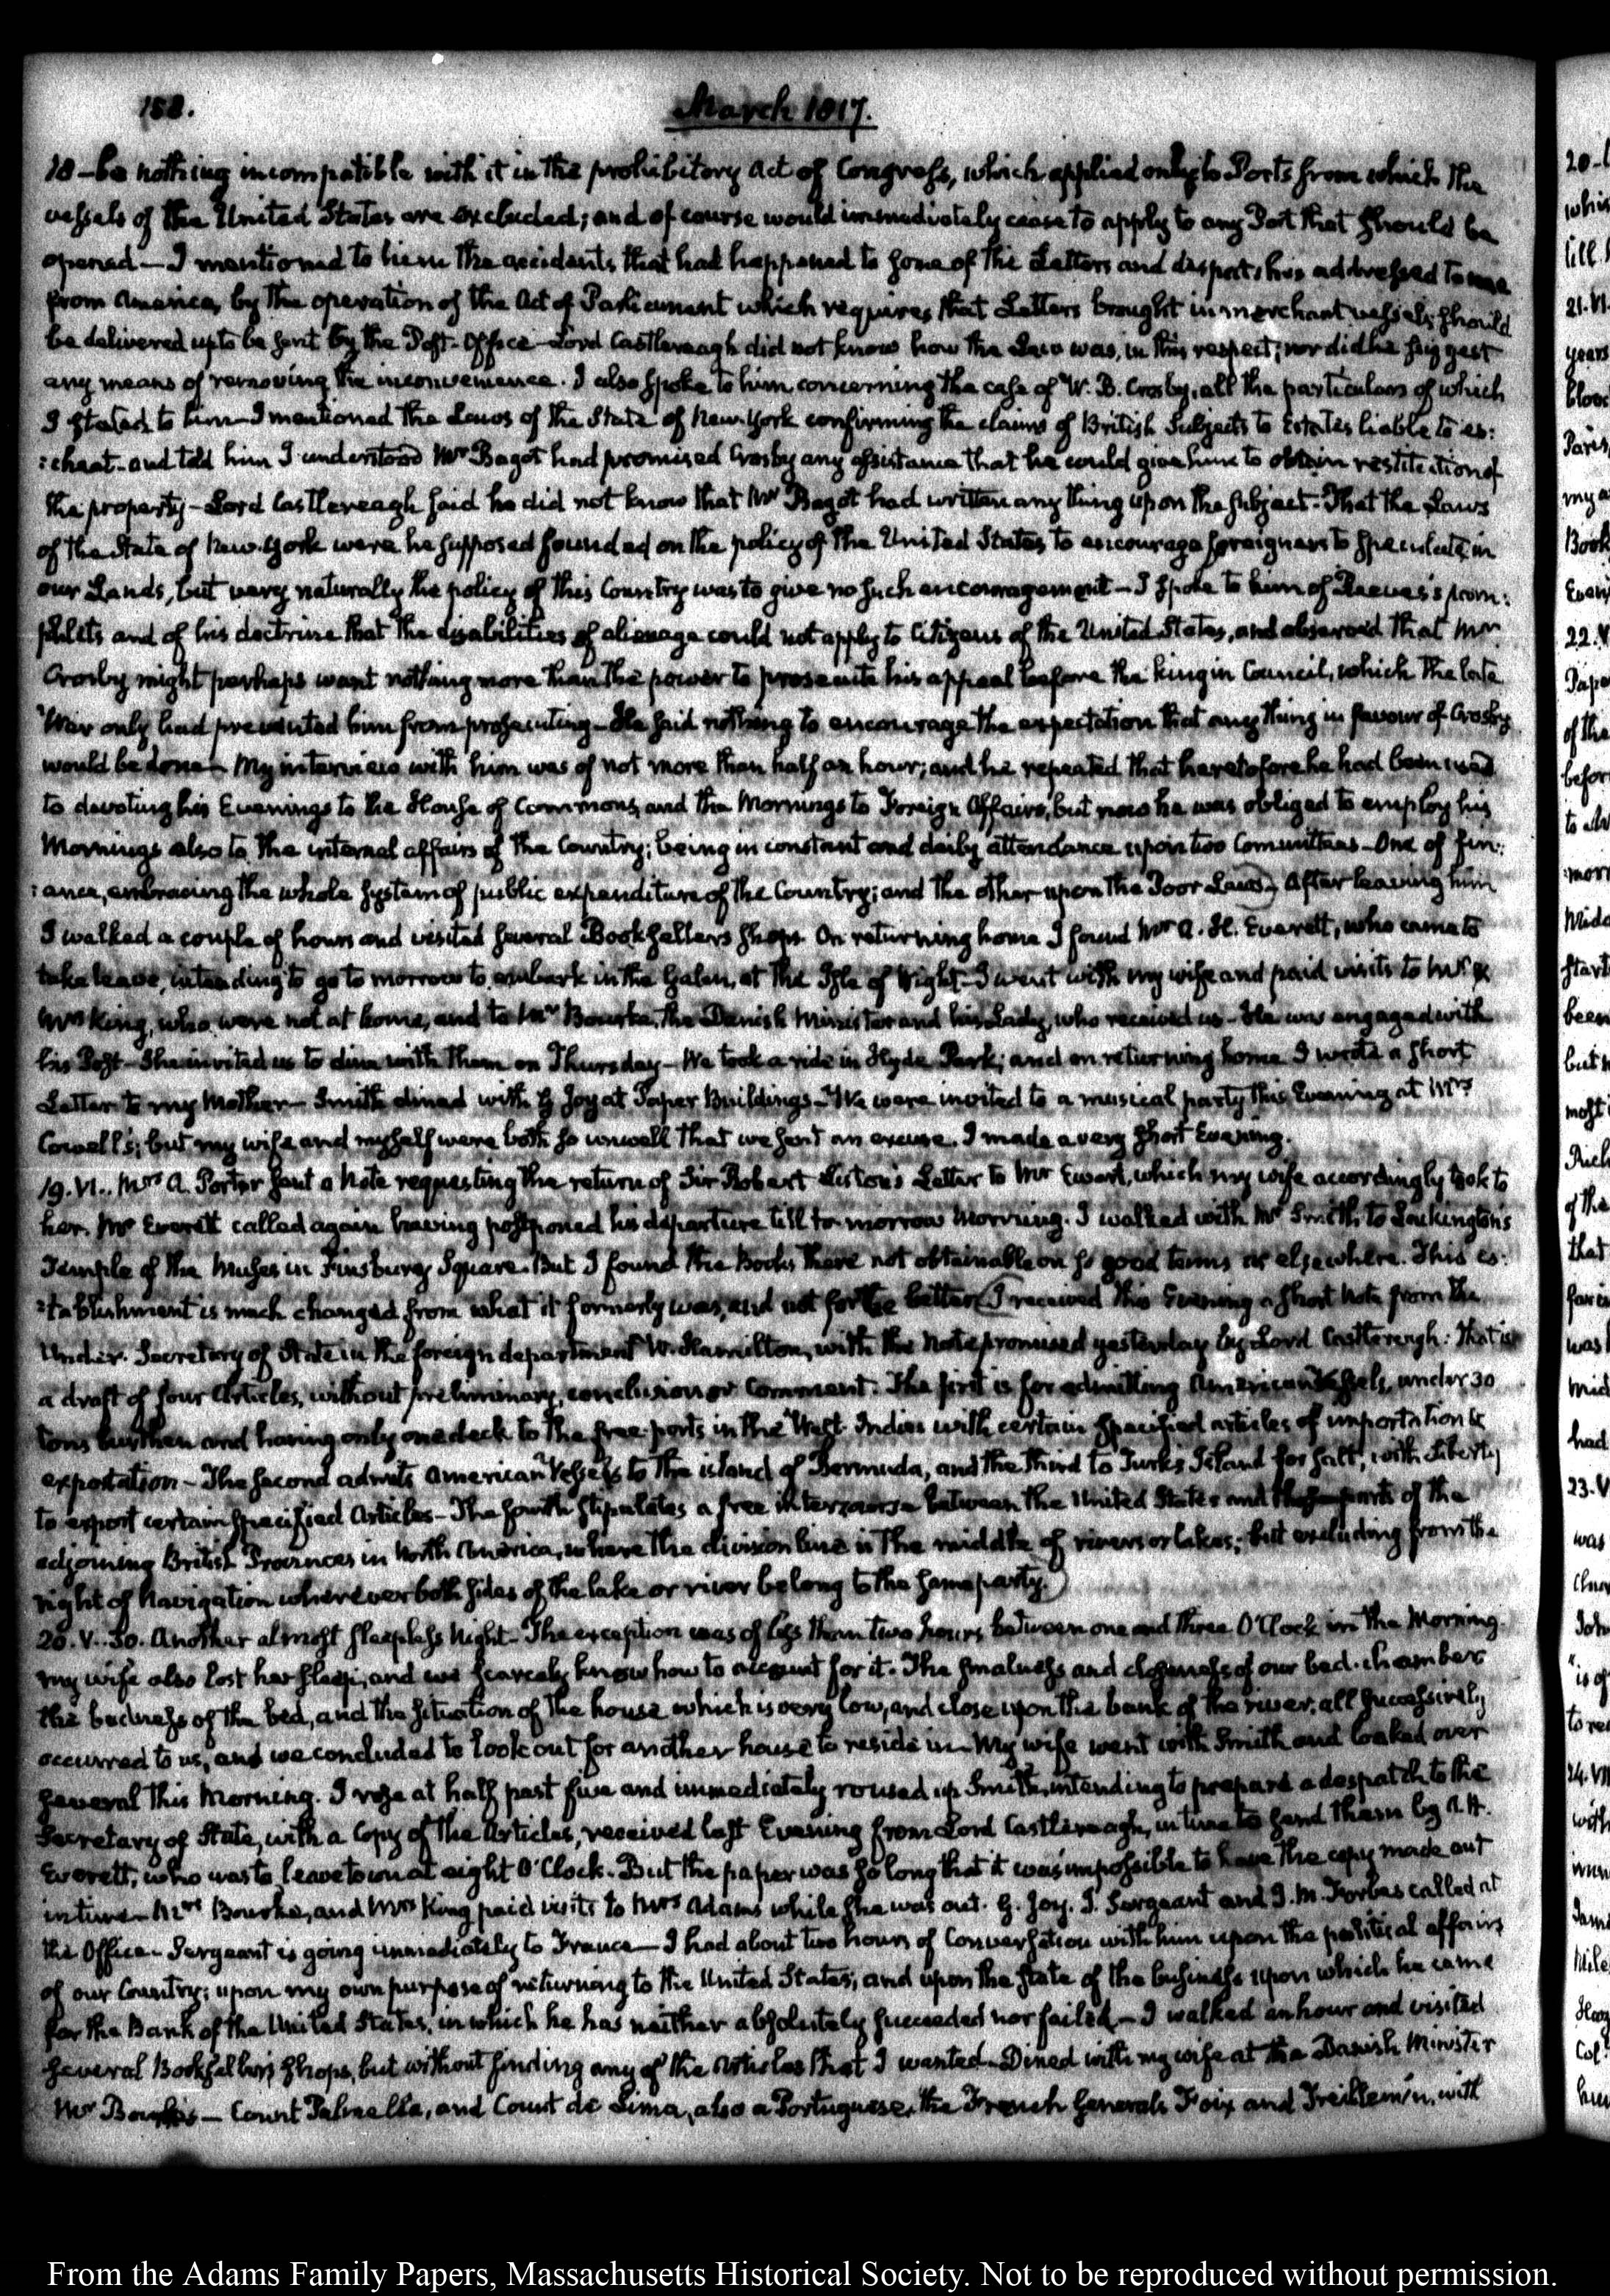 158.
March 1817.
18 — be nothing incompatible with it in the prohibitory Act of Congress, which applied only to Ports from which the
vessels of the United States are excluded; and of course would immediately cease to apply to any Port that should be
opened — I mentioned to him the accidents that had happened to some of the Letters and despatches addressed to me
from America, by the operation of the Act of Parliament which requires that Letters brought in merchant vessels should
be delivered up to be sent by the Post-Office — Lord Castlereagh did not know how the Law was, in this respect; nor did he suggest
any means of removing the inconvenience. I also spoke to him concerning the case of W. B. Crosby, all the particulars of which
I stated to him — I mentioned the Laws of the State of New-York confirming the claims of British Subjects to Estates liable to es:
:cheat — and told him I understood Mr Bagot had promised Crosby any assistance that he could give him to obtain restitution of
the property — Lord Castlereagh said he did not know that Mr Bagot had written any thing upon the subject — That the Laws
of the State of New-York were he supposed founded on the policy of the United States, to encourage foreigners to speculate in
our Lands, but very naturally the policy of this Country was to give no such encouragement — I spoke to him of Reeves's pam:
phlets and of his doctrine that the disabilities of alienage could not apply to Citizens of the United States, and observed that Mr
Crosby might perhaps want nothing more than the power to prosecute his appeal before the King in Council, which the late
War only had prevented him from prosecuting — He said nothing to encourage the expectation that any thing in favour of Crosby
would be done — My interview with him was of not more than half an hour; and he repeated that heretofore he had been used
to devoting his Evenings to the House of Commons, and the Mornings to Foreign Affairs, but now he was obliged to employ his
Mornings also to the internal affairs of the Country; being in constant and daily attendance upon two Committees — One of fin:
:ance, embracing the whole system of public expenditure of the Country; and the other upon the Poor Laws — After leaving him
I walked a couple of hours and visited several Booksellers shops. On returning home I found Mr A. H. Everett, who came to
take leave, intending to go to morrow to embark in the Galen, at the Isle of Wight — I went with my wife and paid visits to Mr &
Mrs King, who were not at home, and to Mr Bourke, the Danish Minister and his Lady, who received us — He was engaged with
his Post — She invited us to dine with them on Thursday — We took a ride in Hyde Park; and on returning home I wrote a short
Letter to my Mother — Smith dined with G Joy at Paper Buildings — We were invited to a musical party this Evening at Mrs
Cowell's; but my wife and myself were both so unwell that we sent an excuse. I made a very short Evening.
19. VI.. Mrs A. Porter sent a Note requesting the return of Sir Robert Liston's Letter to Mr Ewart, which my wife accordingly took to
her. Mr Everett called again having postponed his departure till to-morrow Morning. I walked with Mr Smith to Lackington's
Temple of the Muses in Finsbury Square. But I found the Books there not obtainable on so good terms as elsewhere. This es:
:tablishment is much changed from what it formerly was, and not for the better. I received this Evening a short Note from the
Under-Secretary of State in the foreign department W. Hamilton, with the Note promised yesterday by Lord Castlereagh: That is
a draft of four Articles, without preliminary, conclusion or Comment: The first is for admitting American Vessels, under 30
tons burthen and having only one deck to the free ports in the West-Indies with certain specified articles of importation &
exportation — The second admits American Vessels to the island of Bermuda, and the third to Turks Island for salt, with liberty
to export certain specified Articles — The fourth stipulates a free intercourse between the United States and those parts of the
adjoining British Provinces in North America, where the division line is the middle of rivers or lakes; but excluding from the
right of Navigation wherever both sides of the lake or river belong to the same party.
20. V..30. Another almost sleepless Night — The exception was of less than two hours, between one and three O'Clock in the Morning.
my wife also lost her sleep; and we scarcely know how to account for it. The smalness and closeness of our bed-chamber
the badness of the bed, and the situation of the house which is very low, and close upon the bank of the river; all successively
occurred to us, and we concluded to look out for another house to reside in — My wife went with Smith and looked over
several this Morning. I rose at half past five and immediately roused up Smith, intending to prepare a despatch to the
Secretary of State, with a Copy of the Articles, received last Evening from Lord Castlereagh, in time to send them by A. H.
Everett, who was to leave town at eight O'Clock. But the paper was so long that it was impossible to have the copy made out
in time — Mrs Bourke, and Mrs King paid visits to Mrs Adams while she was out. G. Joy. J. Sergeant and J. M. Forbes called at
the Office — Sergeant is going immediately to France — I had about two hours of Conversation with him upon the political affairs
of our Country; upon my own purpose of returning to the United States; and upon the state of the business upon which he came
for the Bank of the United States, in which he has neither absolutely succeeded nor failed — I walked an hour and visited
several Booksellers shops, but without finding any of the Articles that I wanted — Dined with my wife at the Danish Minister
Mr Bourke's — Count Palmella, and Count de Lima, also a Portuguese, the French Generals and with
From the Adams Family Papers, Massachusetts Historical Society. Not to be reproduced without permission.